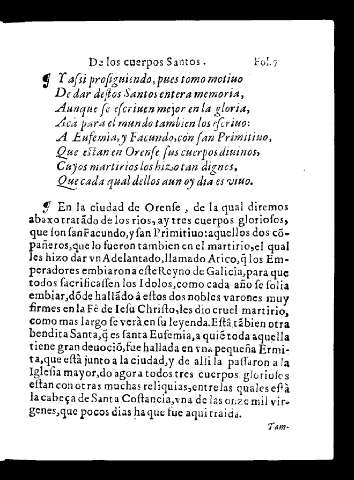 De los cuerpos Santos. Fol. 7
¶ Y assi prosiguiendo, pues tomo motiuo
De dar destos Santos entera memoria,
Aunque se escriuen mejor en la gloria,
Acà para el mundo tambien los escriuo:
A Eufemia, y Facundo, con san Primitiuo,
Que estan en Orense sus cuerpos diuinos,
Cuyos martirios los hizo tan dignos,
Que cada qual dellos aun oy dia es viuo.
¶ En la ciudad de Orense, de la qual diremos
abaxo tratãdo de los rios, ay tres cuerpos gloriosos,
que son san Facundo, y san Primitiuo: aquellos dos cõ-
pañeros, que lo fueron tambien en el martirio, el qual
les hizo dar vn Adelantado, llamado Atico, q̃ los Em-
peradores embiaron a este Reyno de Galicia, para que
todos sacrificassen los Idolos, como cada año se solia
embiar, dõde hallãdo à estos dos nobles varones muy
firmes en la Fè de Iesu Christo, les dio cruel martirio,
como mas largo se verà en su leyenda. Està tãbien otra
bendita Santa, q̃ es santa Eufemia, a quiẽ toda aquella
tiene gran deuociõ, fue hallada en vna pequeña Ermi-
ta, que està junto a la ciudad, y de alli la passaron a la
Iglesia mayor, do agora todos tres cuerpos gloriosos
estan con otras muchas reliquias, entre las quales està
la cabeça de Santa Costancia, vna de las onze mil vir-
genes, que pocos dias ha que fue aqui traida.
Tam-